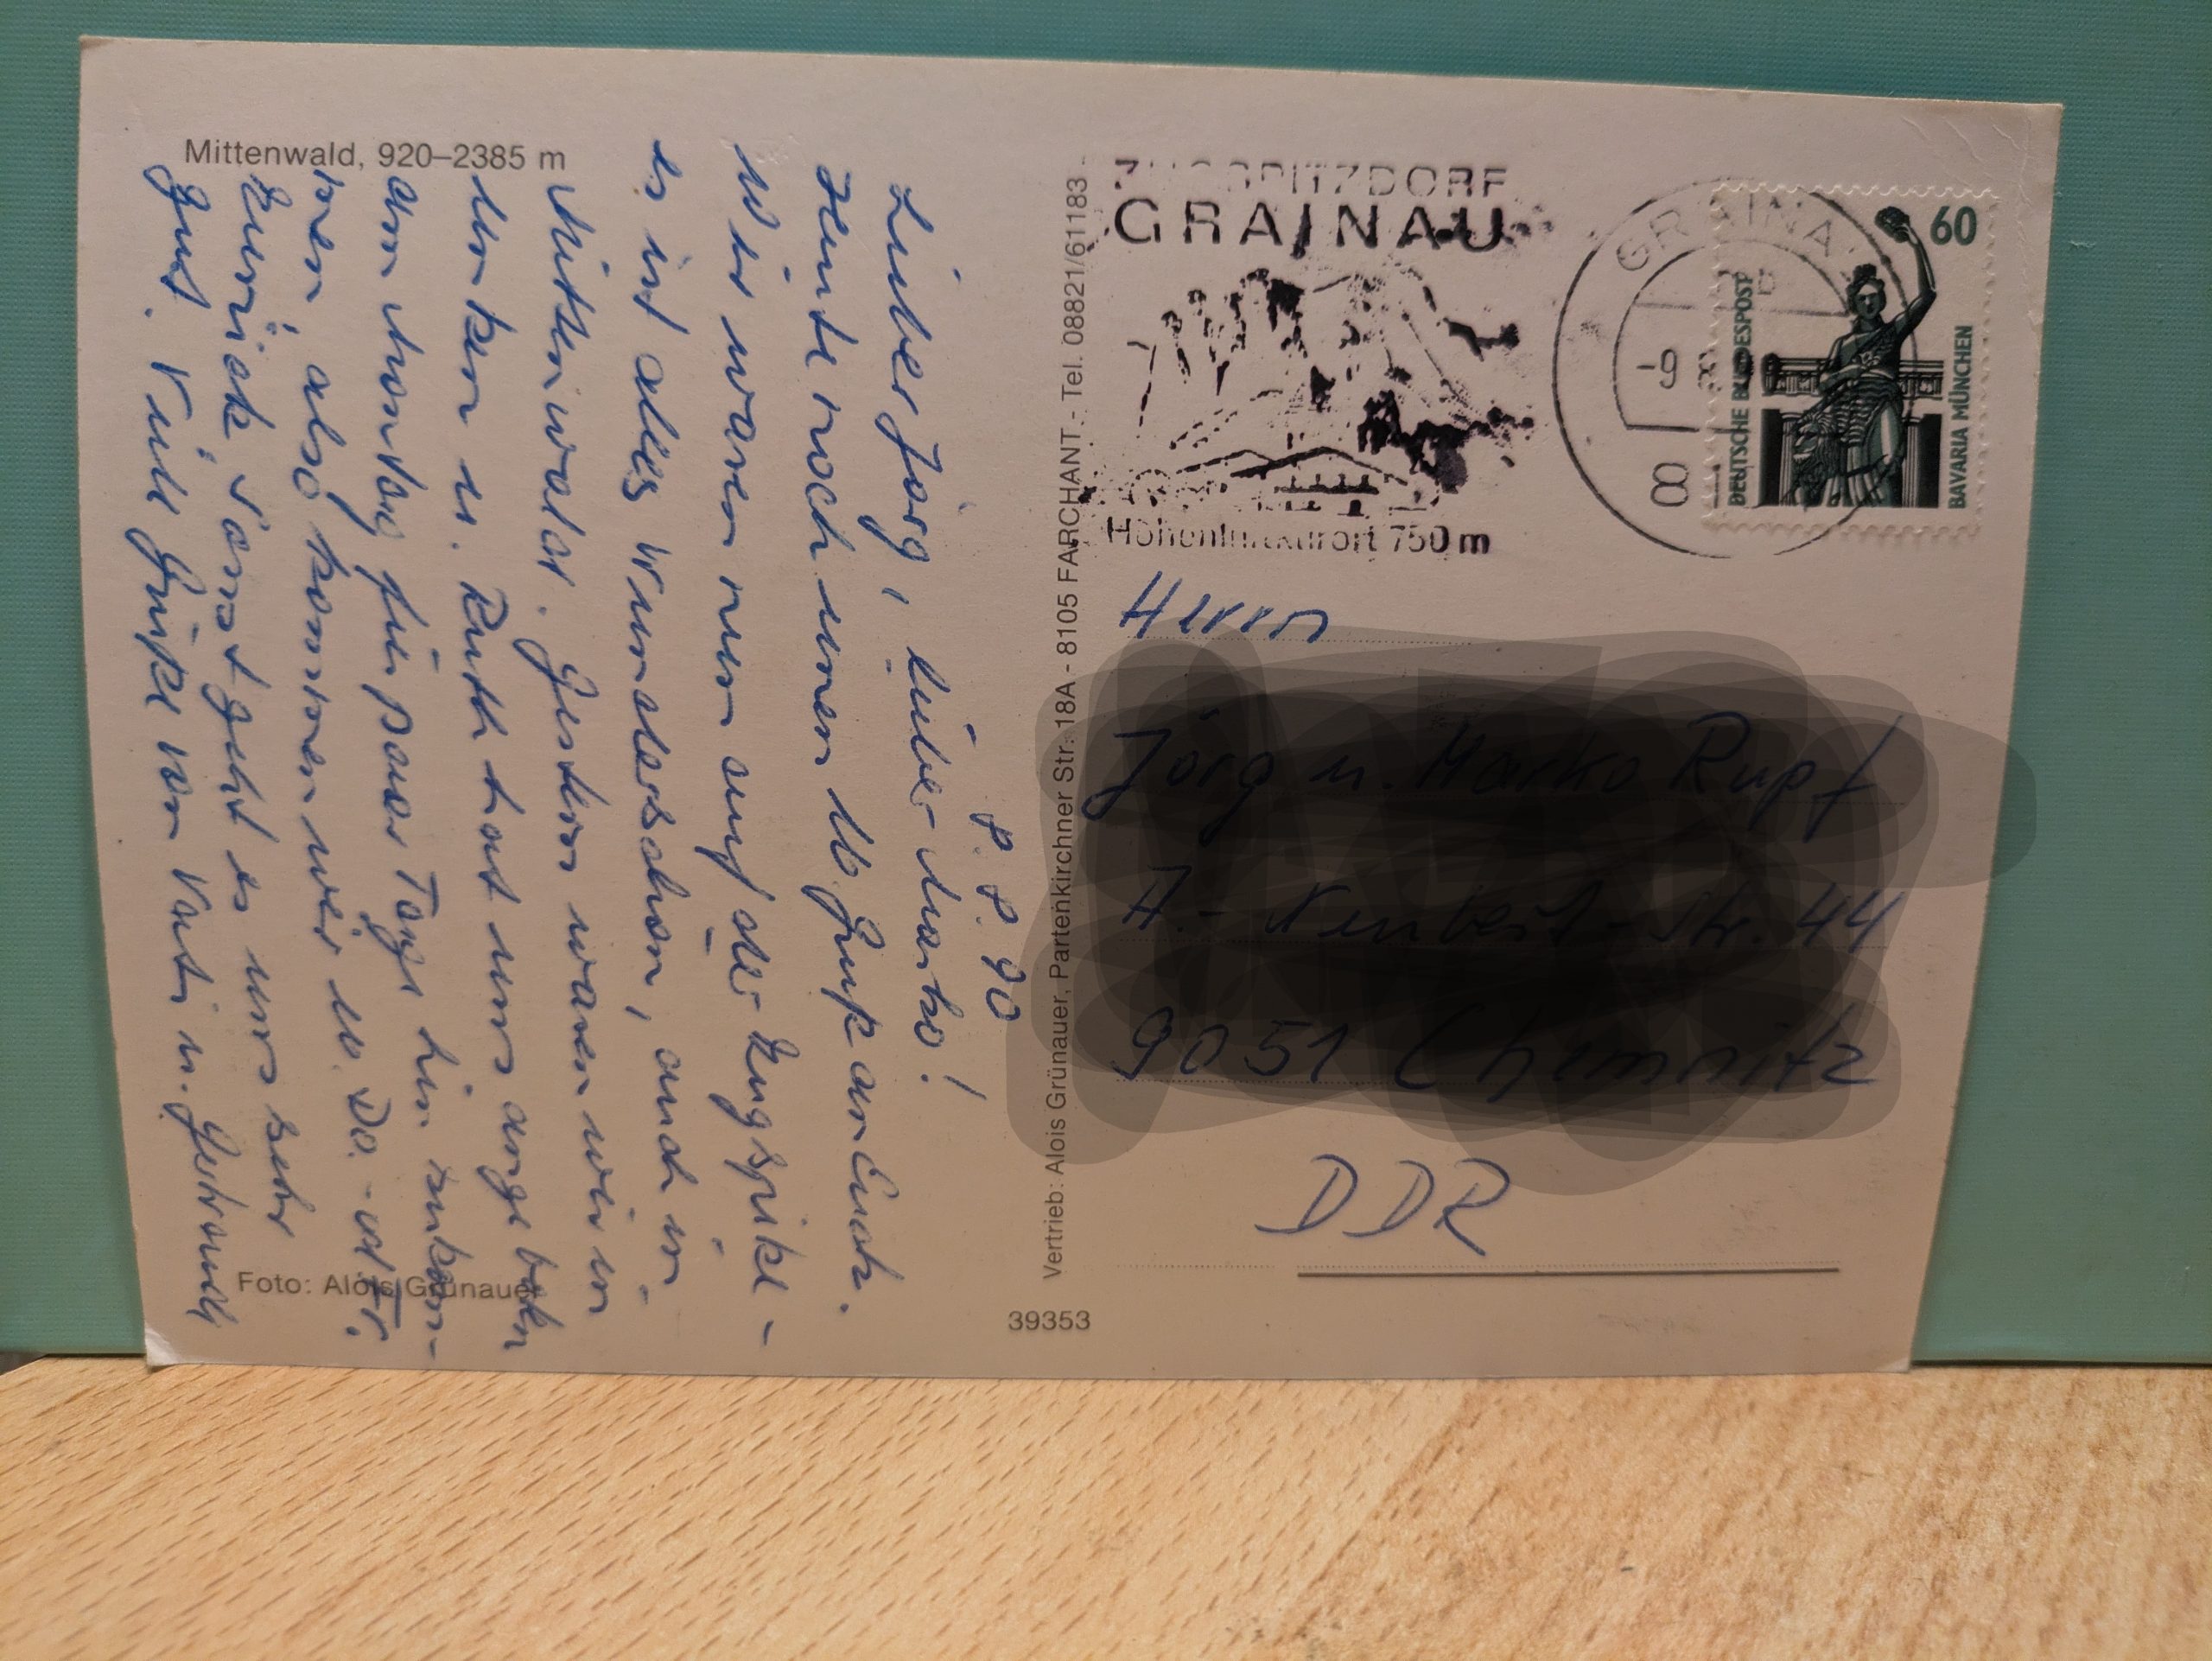 Mittenwald, 920–2385 m
8.8.90
Lieber Jörg, lieber Marko!
Heute noch einen Gruß an Euch.
Wir waren nun auf der Zugspitze -
es ist alles wunderschön, auch in
Mittenwald. Gestern waren wir in
u. Ruth hat uns angeboten
am Montag für paar Tage hin zukom-
men, also kommen wir Do. - Fr.
zurück. Sonst geht es uns sehr
gut. Viele Grüße von Vati u.
Foto: Alois Grünauer
Vertrieb: Alois Grünauer, Partenkirchner Str. 18A - 8105 FARCHANT - Tel. 08821/61183
39353
ZUGSPITZDORF
GRAINAU
Höhenluftkurort 750 m
GRAINAU
-9. 8.
8
60
DEUTSCHE BUNDESPOST
BAVARIA MÜNCHEN
Herrn
DDR